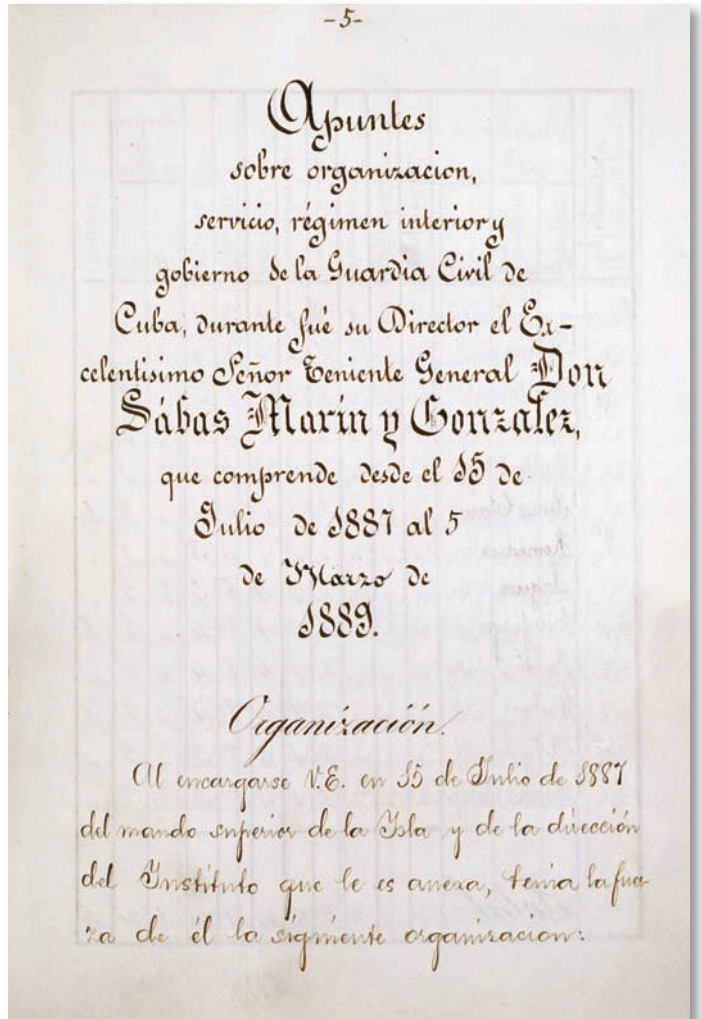 -5-
Apuntes
sobre organizacion,
servicio, régimen interior y
gobierno de la Guardia Civil de
Cuba, durante fué su Director el Ex-
celentisimo Señor Teniente General Don
Sábas Marin y Gonzalez,
que comprende desde el 15 de
Julio de 1887 al 5
de Marzo de
1889.
Organización.
Al encargarse V.E. en 15 de Julio de 1887
del mando superior de la Isla y de la dirección
del Instituto que le es anexa, tenia la fuer-
za de él la siguiente organizacion: